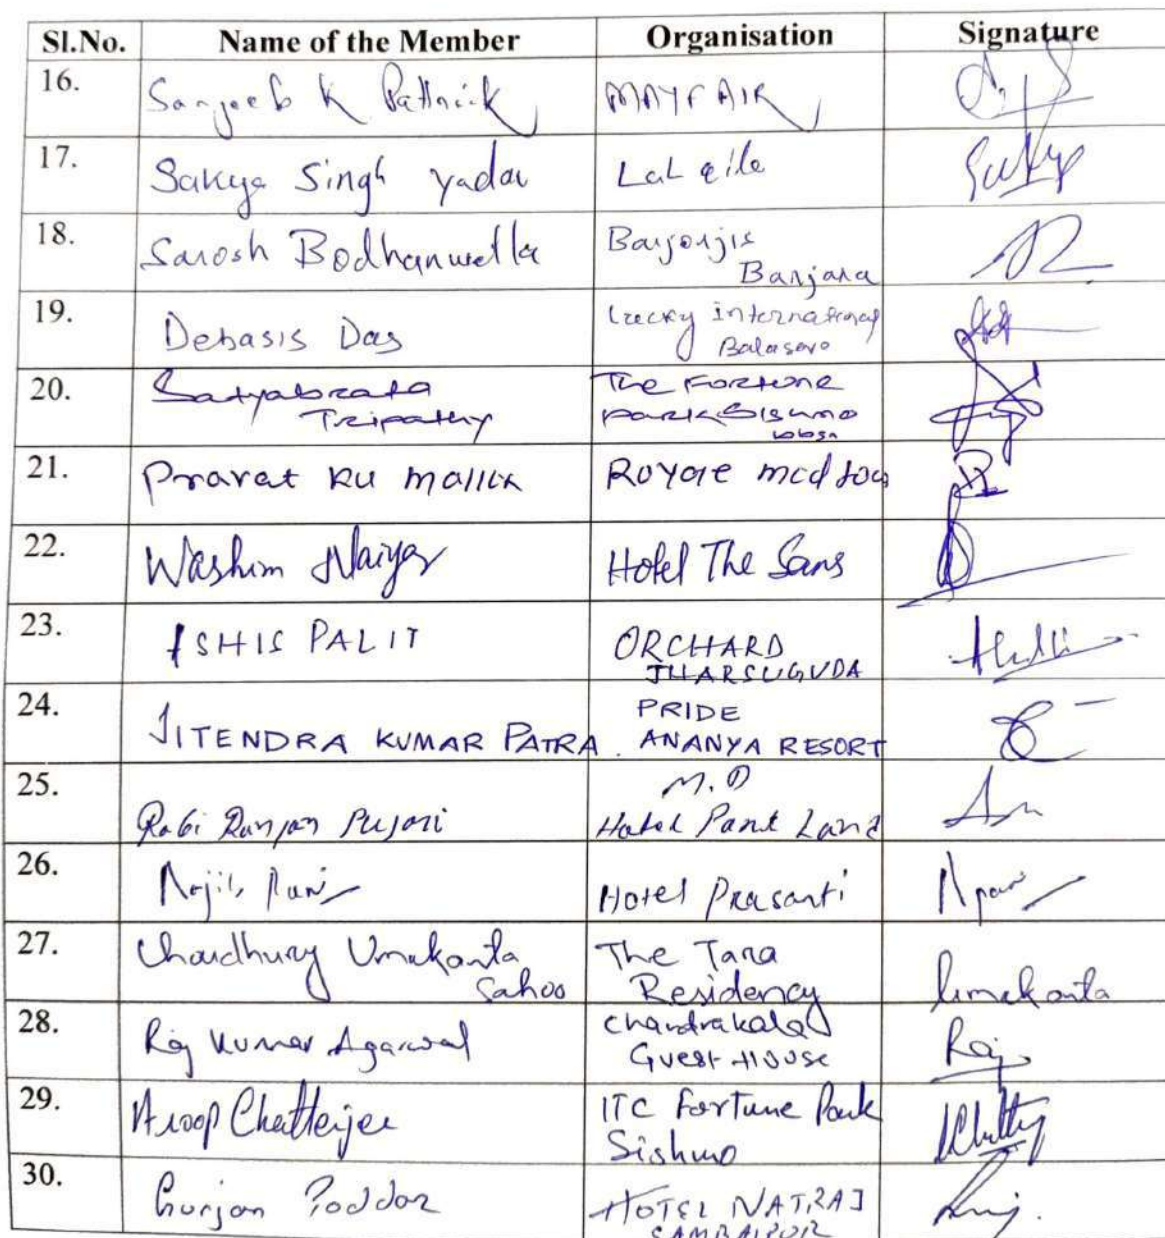 Sl.No. Name of the Member Organisation Signature
16. Sanjeeb K Pattnaik MAYFAIR
17. Sakya Singh Yadav Lal qila
18. Sarosh Bodhanwalla Barjorjis
Banjara
19. Debasis Das Lucky International
Balasore
20. Satyabrata The Fortune
Tripathy Park Sishmo
bbsr
21. Pravat Ku Mallik Royale
22. Washim Hotel The Sans
23. ASHIS PALIT ORCHARD
JHARSUGUDA
24. PRIDE
JITENDRA KUMAR PATRA. ANANYA RESORT
25. M.D
Rabi Ranjan Pujari Hotel Pant Land
26. Hotel Prasanti
27. Choudhury Umakanta The Tara
Sahoo Residency Umakanta
28. Raj Kumar Agarwal Chandrakala Raj
Guest House
29. Aroop Chatterjee ITC Fortune Park
Sishmo
30. Gunjan Poddar HOTEL NATRAJ
SAMBALPUR